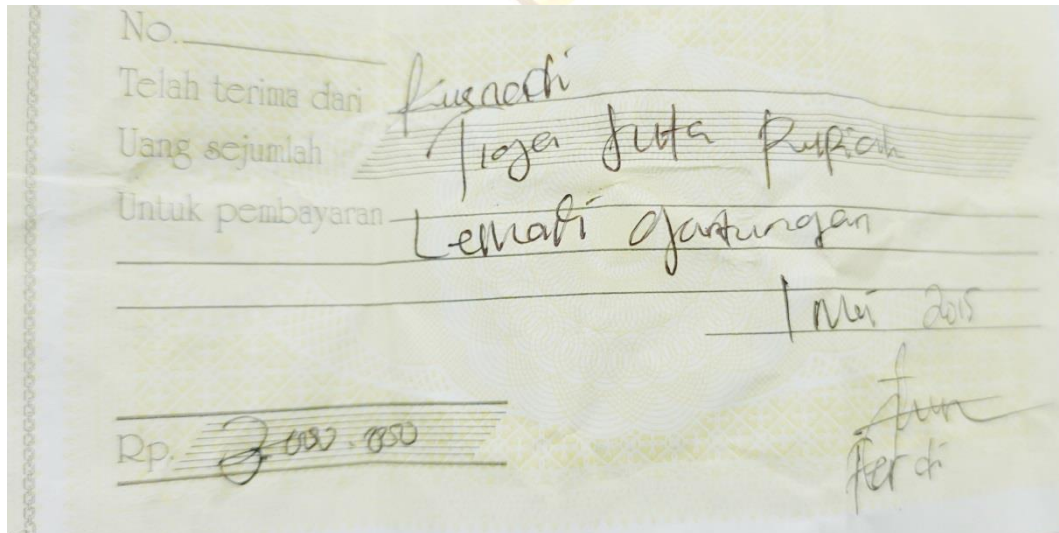 No.
Telah terima dari Kusnadi
Uang sejumlah Tiga Juta Rupiah
Untuk pembayaran Lemari gantungan
1 Mei 2015
Rp. 3.000.000
Ferdi